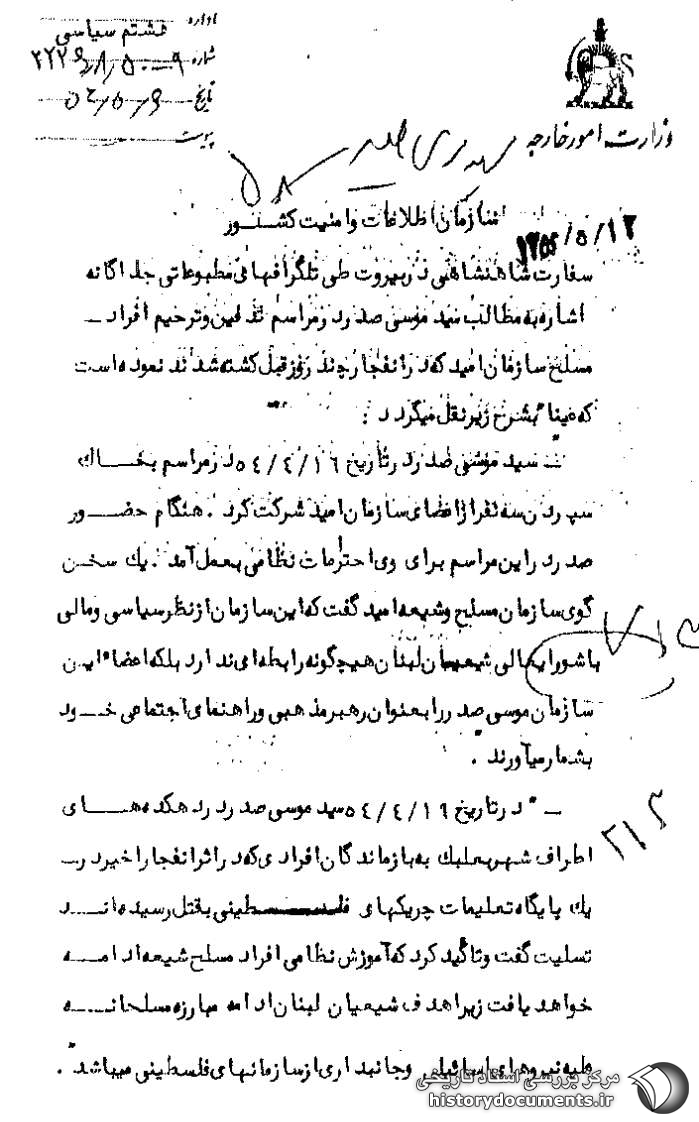 اداره هشتم سیاسی
شماره
تاریخ
پیوست
وزارت امور خارجه
سازمان اطلاعات و امنیت کشور
۱۳۵۴/۵/۱۲
سفارت شاهنشاهی در بیروت طی تلگرافهای مطبوعاتی جداگانه
اشاره به مطالب سید موسی صدر در مراسم تدفین و ترحیم افراد –
مسلح سازمان امید که در انفجار چند روز قبل کشته شدند نموده است
که عینا" بشرح زیر نقل میگردد :
– سید موسی صدر در تاریخ ۵٤/٤/۱٦ در مراسم بخاک
سپردن سه نفر از اعضای سازمان امید شرکت کرد . هنگام حضور
صدر در این مراسم برای وی احترامات نظامی بعمل آمد . یک سخن
گوی سازمان مسلح و شیعه امید گفت که این سازمان از نظر سیاسی و مالی
با شورایعالی شیعیان لبنان هیچگونه رابطه ای ندارد بلکه اعضاء این
سازمان موسی صدر را بعنوان رهبر مذهبی و راهنمای اجتماعی خود
بشمار میآورند .
– " در تاریخ ۵٤/٤/۱٦ سید موسی صدر در دهکده های
اطراف شهر بعلبک به بازماندگان افرادی که در اثر انفجار اخیر در –
یک پایگاه تعلیمات چریکهای فلسطینی بقتل رسیده اند
تسلیت گفت و تاکید کرد که آموزش نظامی افراد مسلح شیعه ادامه
خواهد یافت زیرا هدف شیعیان لبنان ادامه مبارزه مسلحانه
علیه نیروهای اسرائیلی و جانبداری از سازمانهای فلسطینی میباشد" .
۲۱۳
مرکز بررسی اسناد تاریخی
historydocuments.ir